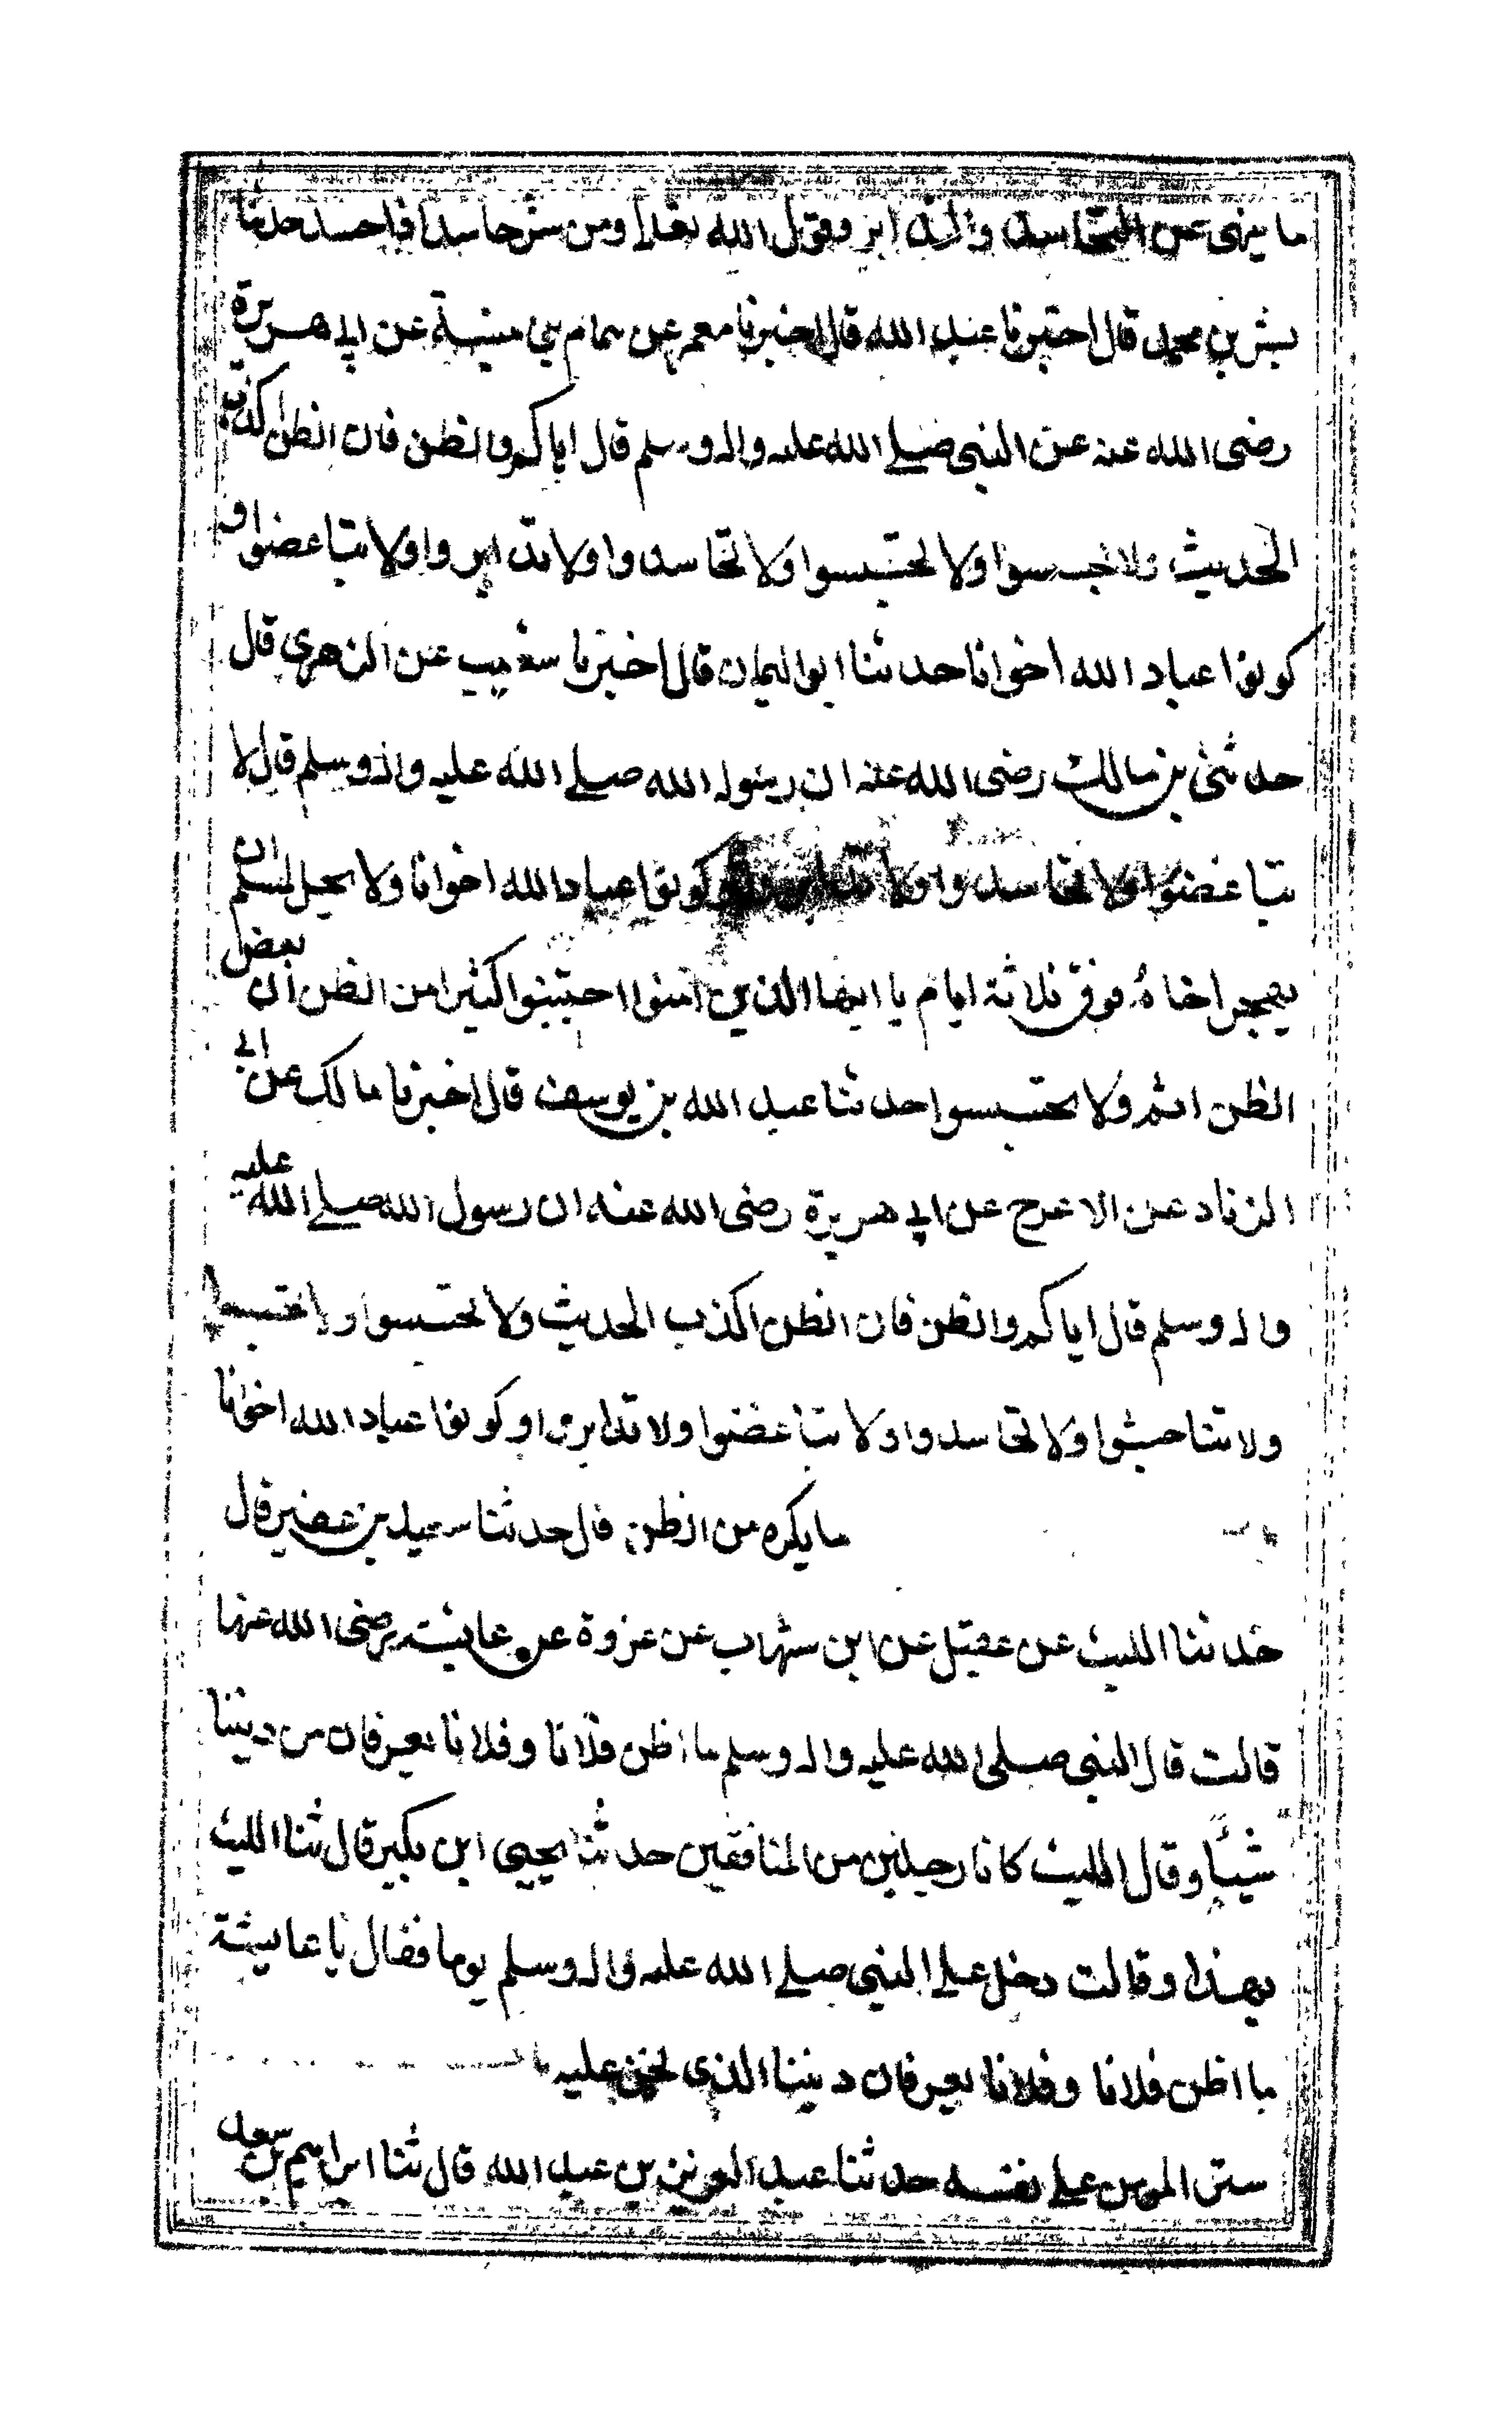 ما ينهى عن التحاسد والتدابر وقوله الله تعلا ومن شر حاسد اذا حسد حدثنا
بشر بن محمد قال اخبرنا عبد الله قال اخبرنا معمر عن همام بن منبه عن ابي هريرة
رضى الله عنه عن النبي صلے الله عليه واله وسلم قال اياكم والظن فان الظن اكذب
الحديث ولا تجسسوا ولا تحسسوا ولا تحاسدوا ولا تدابروا ولا تباغضوا و
كونوا عباد الله اخوانا حدثنا ابو اليمان قال اخبرنا شعيب عن الزهري قال
حدثنى بن مالك رضى الله عنه ان رسول الله صلے الله عليه واله وسلم قال لا
تباغضوا ولا تحاسدوا ولا تدابروا وكونوا عباد الله اخوانا ولا يحل لمسلم ان
يهجر اخاه فوق ثلاثة ايام يا ايها الذين آمنوا اجتنبوا كثيرا من الظن ان بعض
الظن اثم ولا تجسسوا حدثنا عبد الله بن يوسف قال اخبرنا مالك عن ابي
الزناد عن الاعرج عن ابي هريرة رضى الله عنه ان رسول الله صلے الله عليه
واله وسلم قال اياكم والظن فان الظن اكذب الحديث ولا تحسسوا ولا تجسسوا
ولا تناجشوا ولا تحاسدوا ولا تباغضوا ولا تدابروا وكونوا عباد الله اخوانا
ما يكره من الظن قال حدثنا سعيد بن عفير قال
حدثنا الليث عن عقيل عن ابن شهاب عن عروة عن عايشة رضى الله عنها
قالت قال النبي صلى الله عليه واله وسلم ما اظن فلانا وفلانا يعرفان من ديننا
شيئا وقال الليث كانا رجلين من المنافقين حدثنا يحيى ابن بكير قال ثنا الليث
بهذا وقالت دخل علے النبي صلے الله عليه واله وسلم يوما فقال يا عايشة
ما اظن فلانا وفلانا يعرفان ديننا الذى نحن عليه
ستر المومن علے نفسه حدثنا عبد العزيز بن عبد الله قال ثنا ابراهيم بن سعد